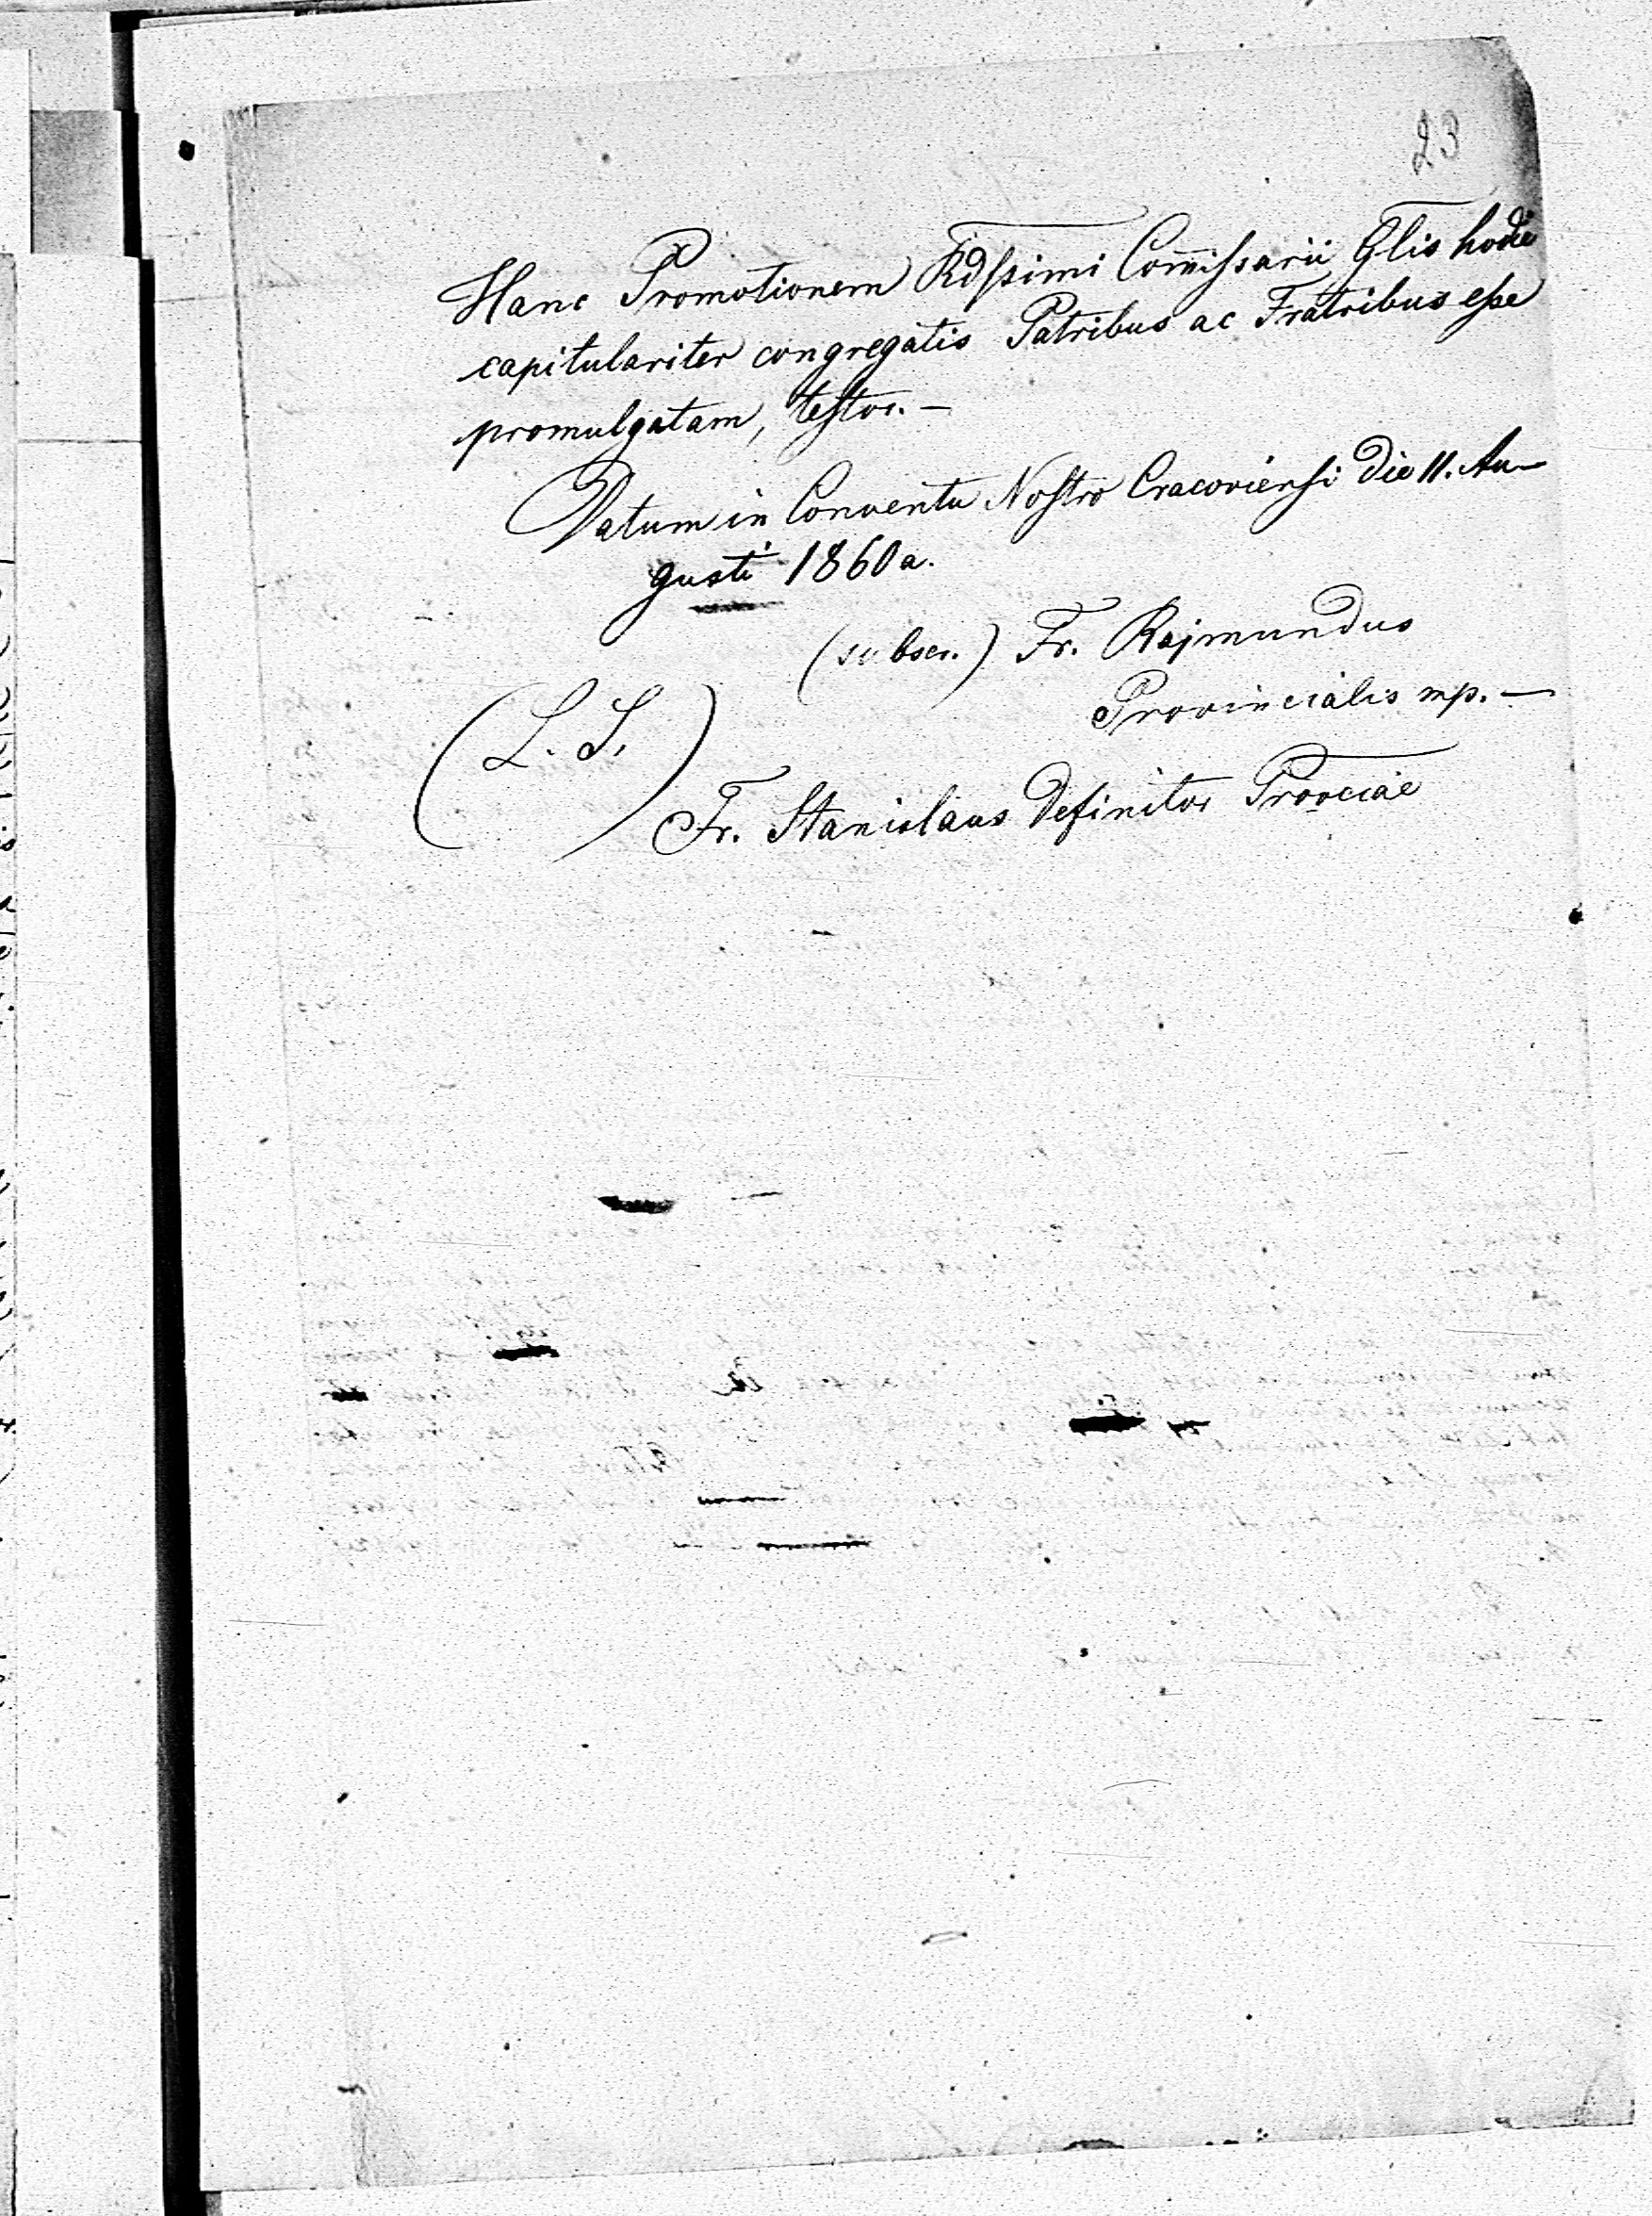 23
Hanc Promotionem Rdſsimi Com̄iſsarii Glis hodie
capitulariter congregatis Patribus ac Fratribus eſse
promulgatam, teſtor. —
Datum in Conventu Noſtro Cracovienſi die 11. Au-
gusti 1860 a.
(subscr.) Fr. Rajmundus
Provincialis mp. —
(L. S.)
Fr. Stanislaus Definitor Provciae